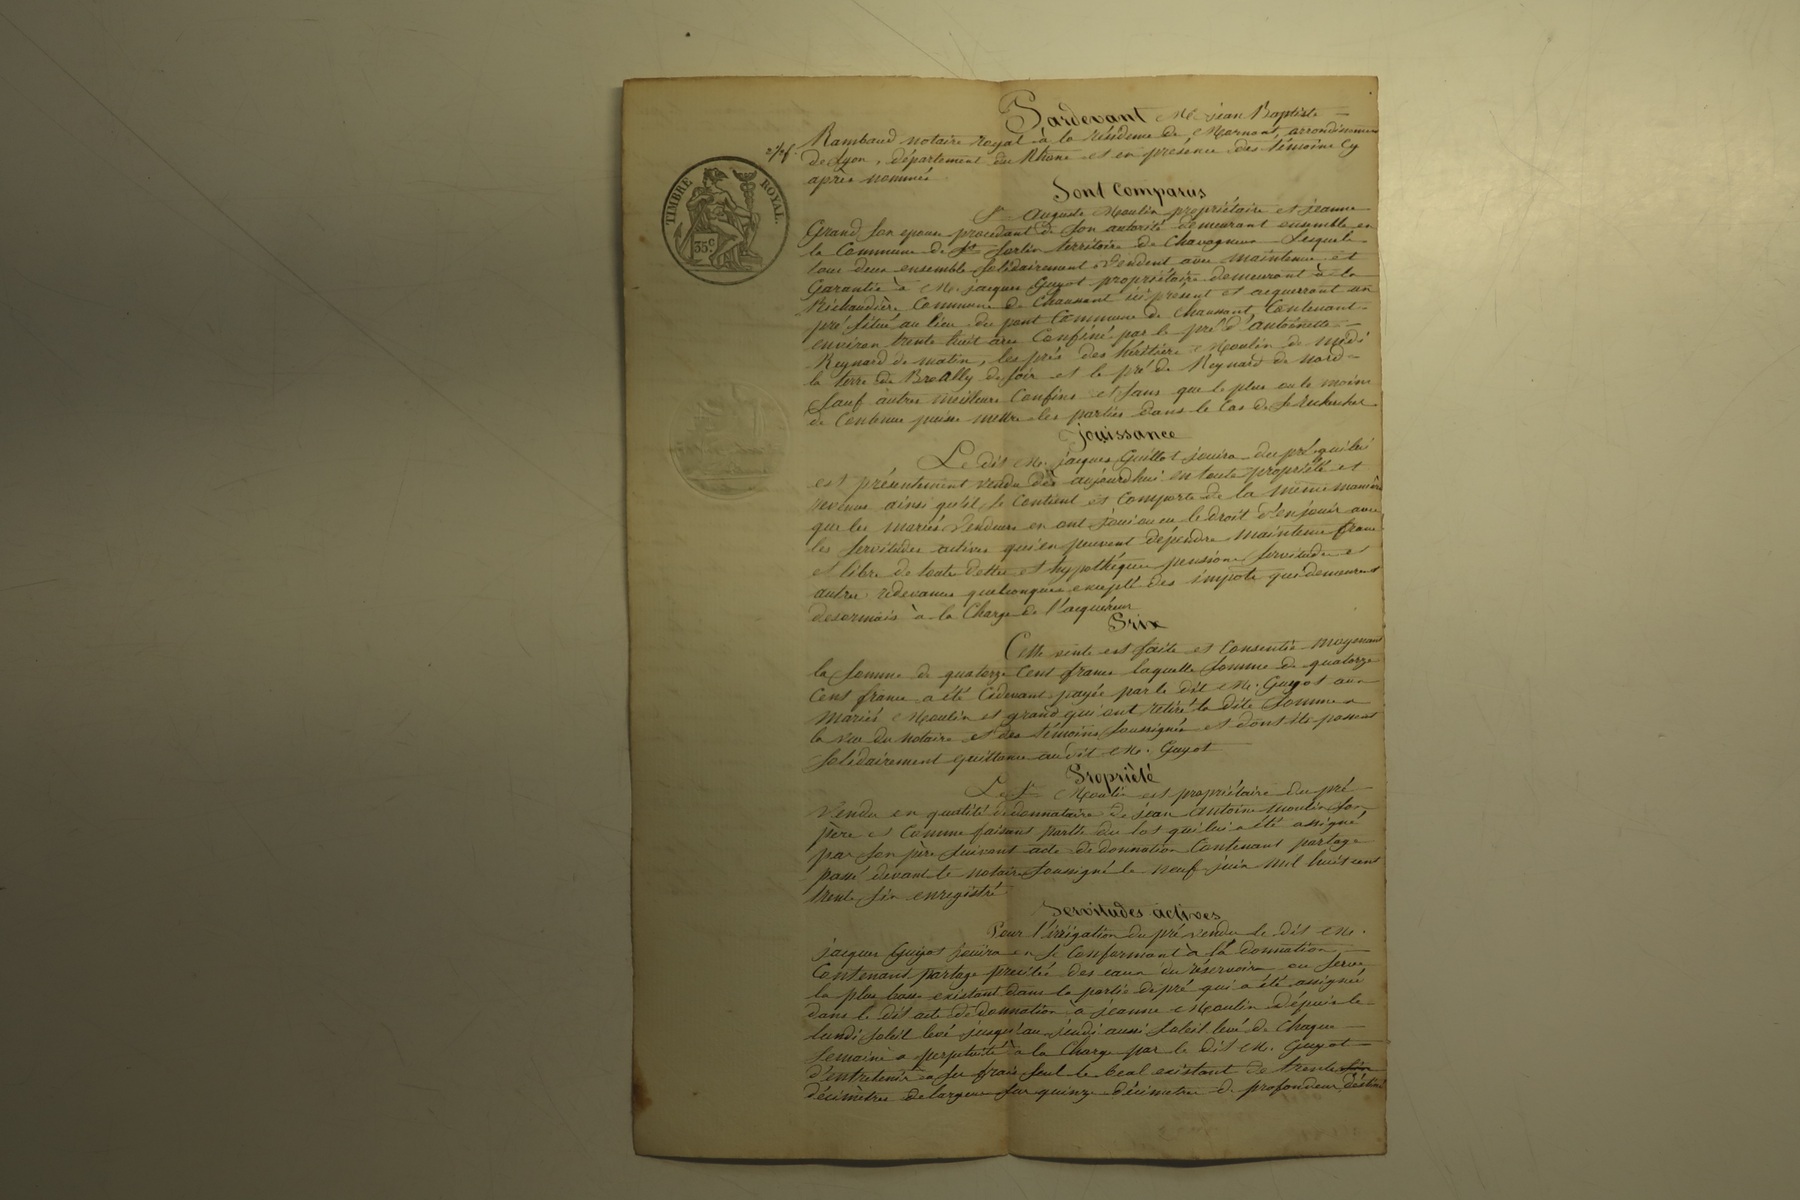 Pardevant Me. jean Baptiste
Rambaud notaire royal à la résidence de Mornant, arrondissement
de Lyon, département du Rhône et en présence des témoins cy
après nommés
TIMBRE ROYAL
35c
Sont comparus
Sr. Auguste Moulin propriétaire et jeanne
Grand son epouse procedant de son autorité demeurant ensemble en
la Commune de St. Sorlin territoire de Chavagneux Lesquels
tous deux ensemble solidairement, Vendent avec maintenue et
Garantie à M. jacques Guyot propriétaire demeurant à la
Richaudière Commune de Chaussant ici present et acquerront un
pré situé au lieu du pont Commune de Chaussant, Contenant
environ trente huit ares Confiné par le pré d'antoinette
Reynard de matin, les prés des héritiers Moulin de midi
la terre de Broally de soir et le pré de Reynard de nord
Sauf autres meilleurs Confins et sans que le plus ou le moins
de Contenue puisse mettre les parties dans le Cas de se rechercher
jouissance
Le dit M. jacques Guillot jouira du pré qui lui
est présentement vendu dès aujourdhui en toute propriété et
revenus ainsi qu'il se Contient et Comporte de la même manière
que les mariés Vendeurs en ont joui ou eu le droit d'en jouir avec
les servitudes actives qui en peuvent dépendre maintenu franc
et libre de toute dettes et hypothèques pensions servitudes et
autres redevances quelconques excepté des impots qui demeurent
desormais à la Charge de l'acquéreur
Prix
Cette vente est faite et Consentie moyenant
la somme de quatorze Cent francs laquelle somme de quatorze
Cent francs a été Cidevant payée par le dit M. Guyot aux
Mariés Moulin et grand qui ont retiré la dite somme a
la vue du notaire et des témoins soussignés et dont ils passent
solidairement quittance au dit M. Guyot
Propriété
Le Sr. Moulin est propriétaire du pré
Vendu en qualité de donnataire de jean antoine moulin son
père et Comme faisant partie du lot qui lui a été assigné
par son père suivant acte de donnation Contenant partage
passé devant le notaire soussigné le neuf juin mil huit cent
trente six enregistré
Servitudes actives
Pour l'irrigation du pré vendu le dit M.
jacques Guyot jouira en se Conformant à la donnation
Contenant partage précitée des eaux du réservoir ou serve
la plus basse existant dans la partie de pré qui a été assignée
dans le dit acte de donnation à jeanne Moulin depuis le
lundi soleil levé jusqu'au jeudi aussi soleil levé de Chaque
Semaine a perpetuité à la Charge par le dit M. Guyot
d'entretenir a ses frais seul le béal existant de trente
décimètres de largeur sur quinze décimetres de profondeur destiné